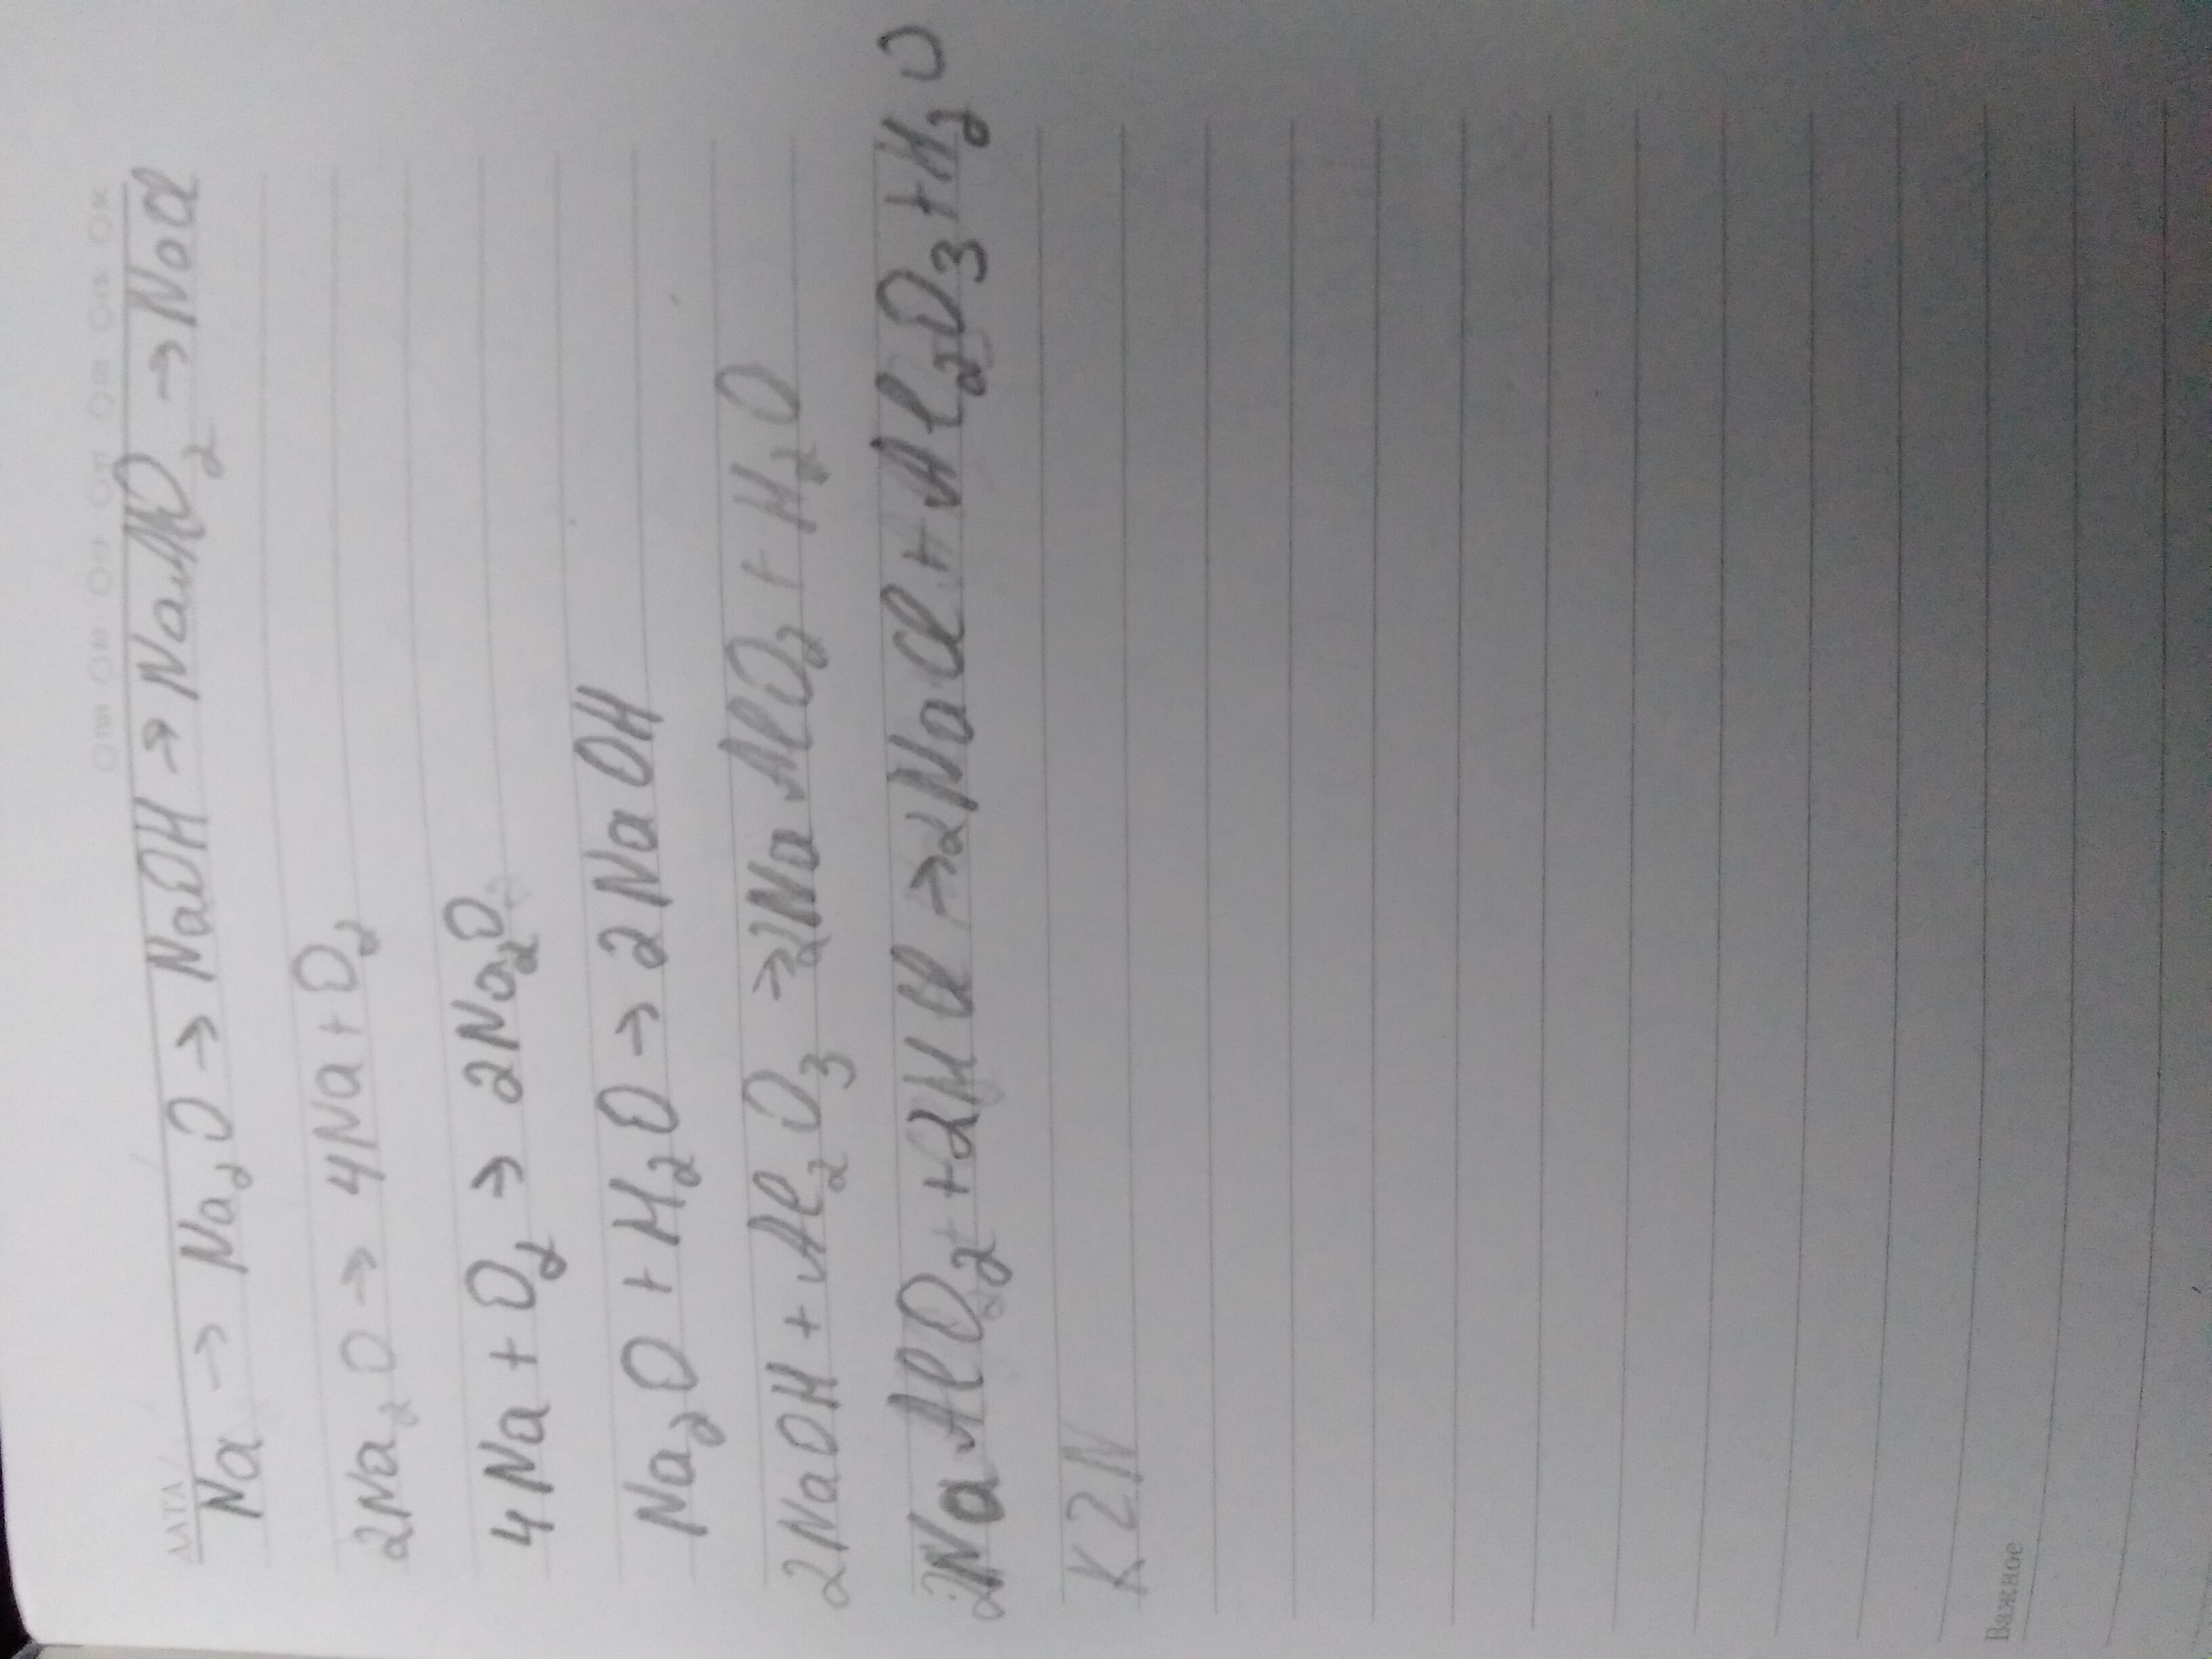 ДАТА
Na → Na₂O → NaOH → NaAlO₂ → NaCl
2Na₂O → 4Na + O₂
4Na + O₂ → 2Na₂O
Na₂O + H₂O → 2NaOH
2NaOH + Al₂O₃ → 2NaAlO₂ + H₂O
2NaAlO₂ + 2HCl → 2NaCl + Al₂O₃ + H₂O
K2N
Важное